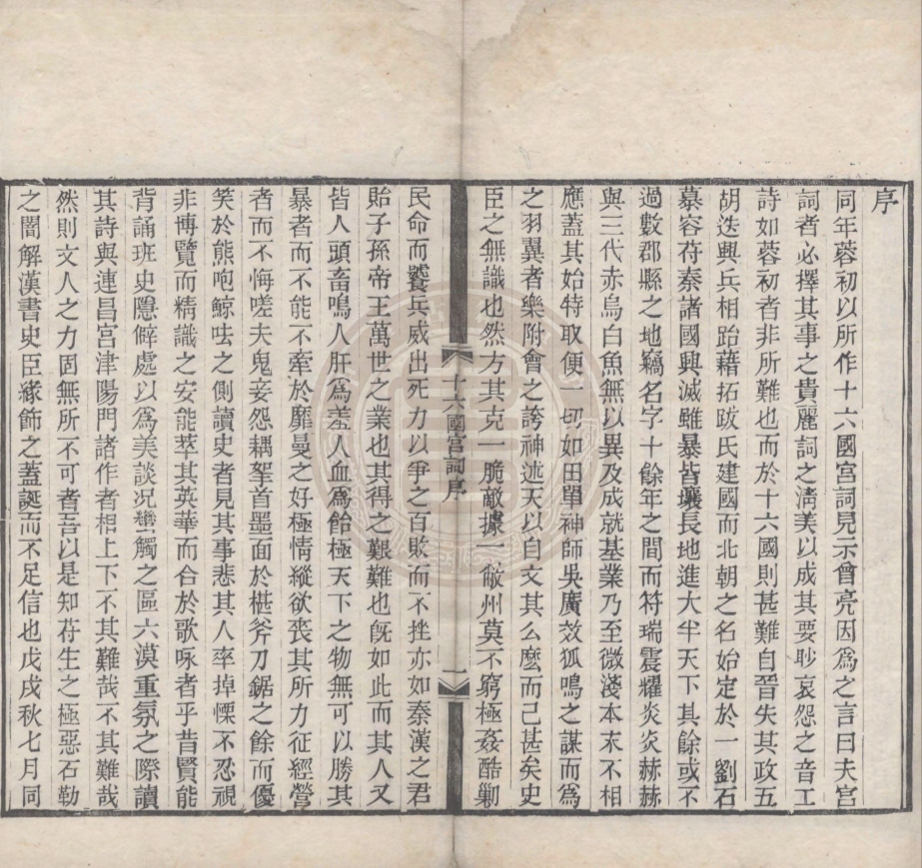 序
同年蓉初以所作十六國宮詞見示曾亮因爲之言曰夫宮
詞者必擇其事之貴麗詞之淸美以成其要眇哀怨之音工
詩如蓉初者非所難也而於十六國則甚難自晉失其政五
胡迭興兵相跆藉拓跋氏建國而北朝之名始定於一劉石
慕容苻秦諸國興滅雖暴皆壤長地進大半天下其餘或不
過數郡縣之地竊名字十餘年之間而符瑞震耀炎炎赫赫
與三代赤烏白魚無以異及成就基業乃至微淺本末不相
應蓋其始特取便一切如田單神師吳廣效狐鳴之謀而爲
之羽翼者樂附會之誇神述天以自文其么麽而已甚矣史
臣之無識也然方其克一脆敵據一敝州莫不窮極姦酷勦
十六國宮詞序
一
民命而饕兵威出死力以爭之百敗而不挫亦如秦漢之君
貽子孫帝王萬世之業也其得之艱難也旣如此而其人又
皆人頭畜鳴人肝爲羞人血爲飴極天下之物無可以勝其
暴者而不能不牽於靡曼之好極情縱欲喪其所力征經營
者而不悔嗟夫鬼妾怨耦拏首墨面於椹斧刀鋸之餘而優
笑於熊咆鯨呿之側讀史者見其事悲其人率掉慄不忍視
非博覽而精識之安能萃其英華而合於歌咏者乎昔賢能
背誦班史隱僻處以爲美談况蠻觸之區六漠重氛之際讀
其詩與連昌宮津陽門諸作者相上下不其難哉不其難哉
然則文人之力固無所不可者吾以是知苻生之極惡石勒
之闇解漢書史臣緣飾之蓋誕而不足信也戊戌秋七月同